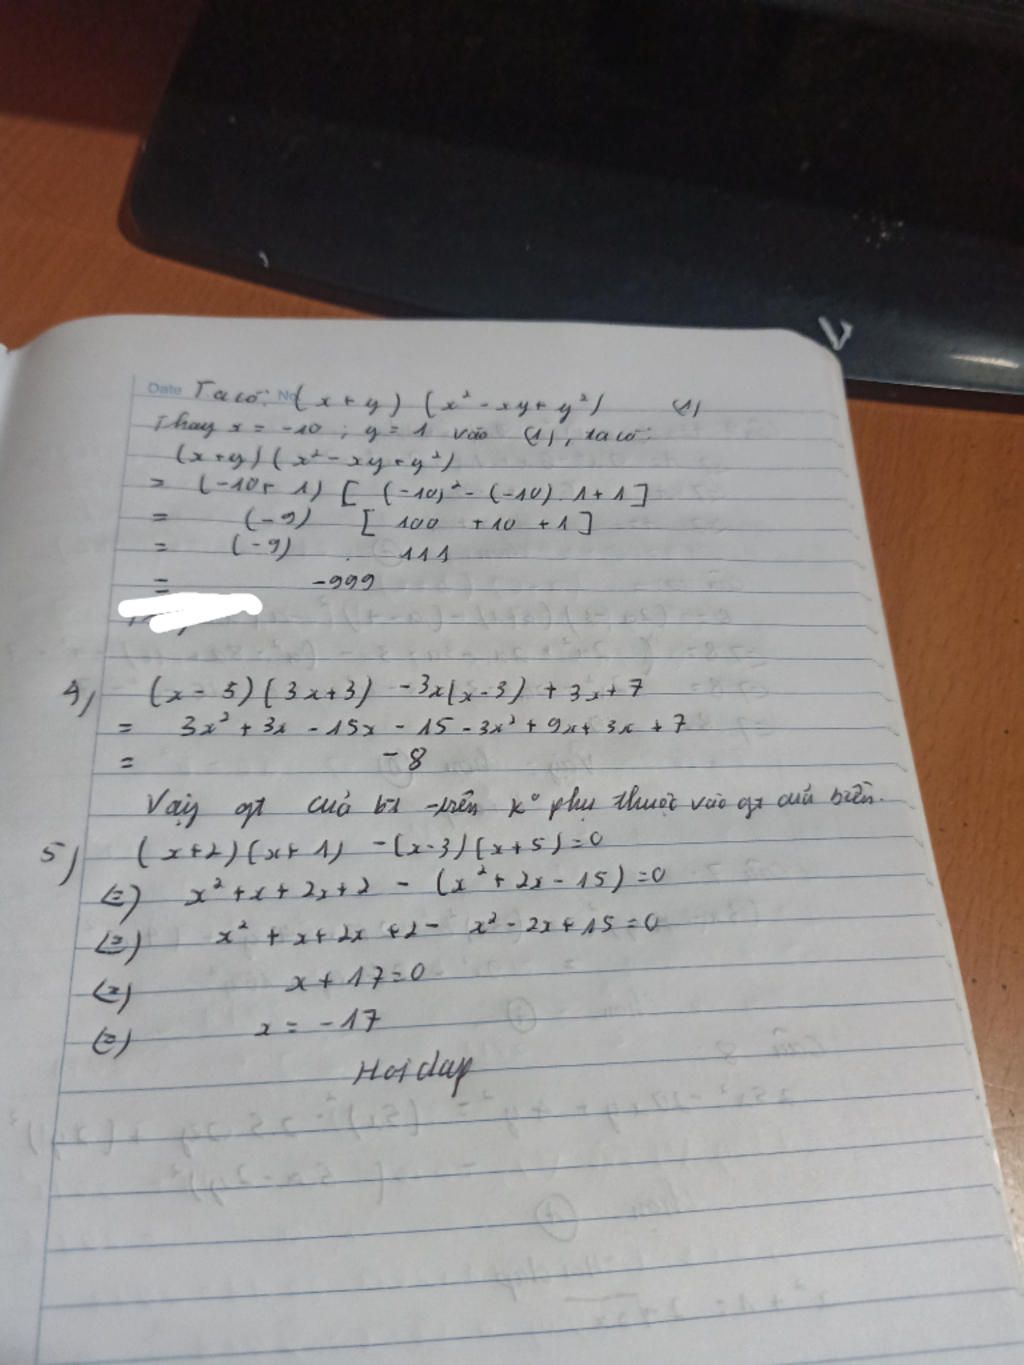 Date No
Ta có: (x + y) (x² - xy + y²) (1)
Thay x = -10 ; y = 1 vào (1), ta có:
(x+y) (x² - xy + y²)
= (-10+ 1) [ (-10)² - (-10) . 1 + 1 ]
= (-9) [ 100 + 10 + 1 ]
= (-9) . 111
= -999
4) (x - 5) (3x+3) - 3x(x-3) + 3x + 7
= 3x² + 3x - 15x - 15 - 3x² + 9x + 3x + 7
= -8
Vậy gt của bt trên k° phụ thuộc vào gt của biến.
5) (x+2) (x+1) - (x-3) (x+5) = 0
(=) x² + x + 2x + 2 - (x² + 2x - 15) = 0
(=) x² + x + 2x + 2 - x² - 2x + 15 = 0
(=) x + 17 = 0
(=) x = -17
Hoidap